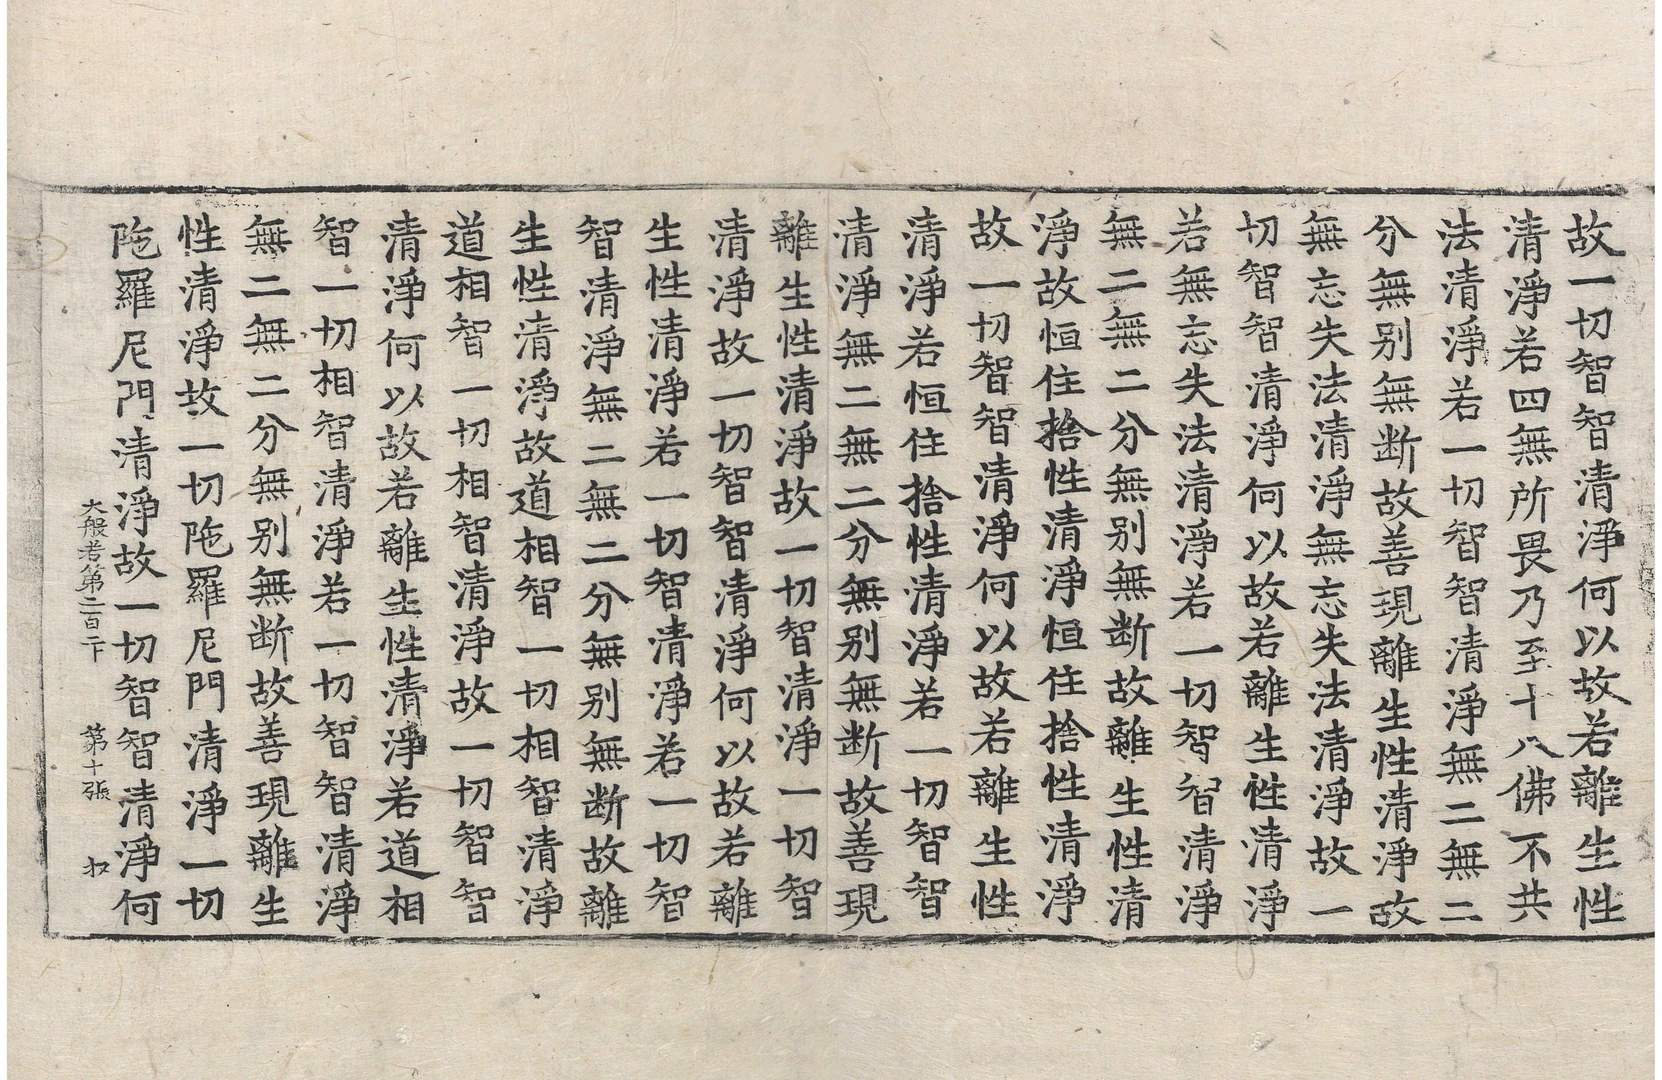 故一切智智清淨何以故若離生性
清淨若四無所畏乃至十八佛不共
法清淨若一切智智清淨無二無二
分無别無断故善現離生性清淨故
無忘失法清淨無忘失法清淨故一
切智智清淨何以故若離生性清淨
若無忘失法清淨若一切智智清淨
無二無二分無别無断故離生性清
淨故恒住捨性清淨恒住捨性清淨
故一切智智清淨何以故若離生性
清淨若恒住捨性清淨若一切智智
清淨無二無二分無别無断故善現
離生性清淨故一切智清淨一切智
清淨故一切智智清淨何以故若離
生性清淨若一切智清淨若一切智
智清淨無二無二分無别無断故離
生性清淨故道相智一切相智清淨
道相智一切相智清淨故一切智智
清淨何以故若離生性清淨若道相
智一切相智清淨若一切智智清淨
無二無二分無别無断故善現離生
性清淨故一切陁羅尼門清淨一切
陁羅尼門清淨故一切智智清淨何
大般若第二百二十 第十張 収